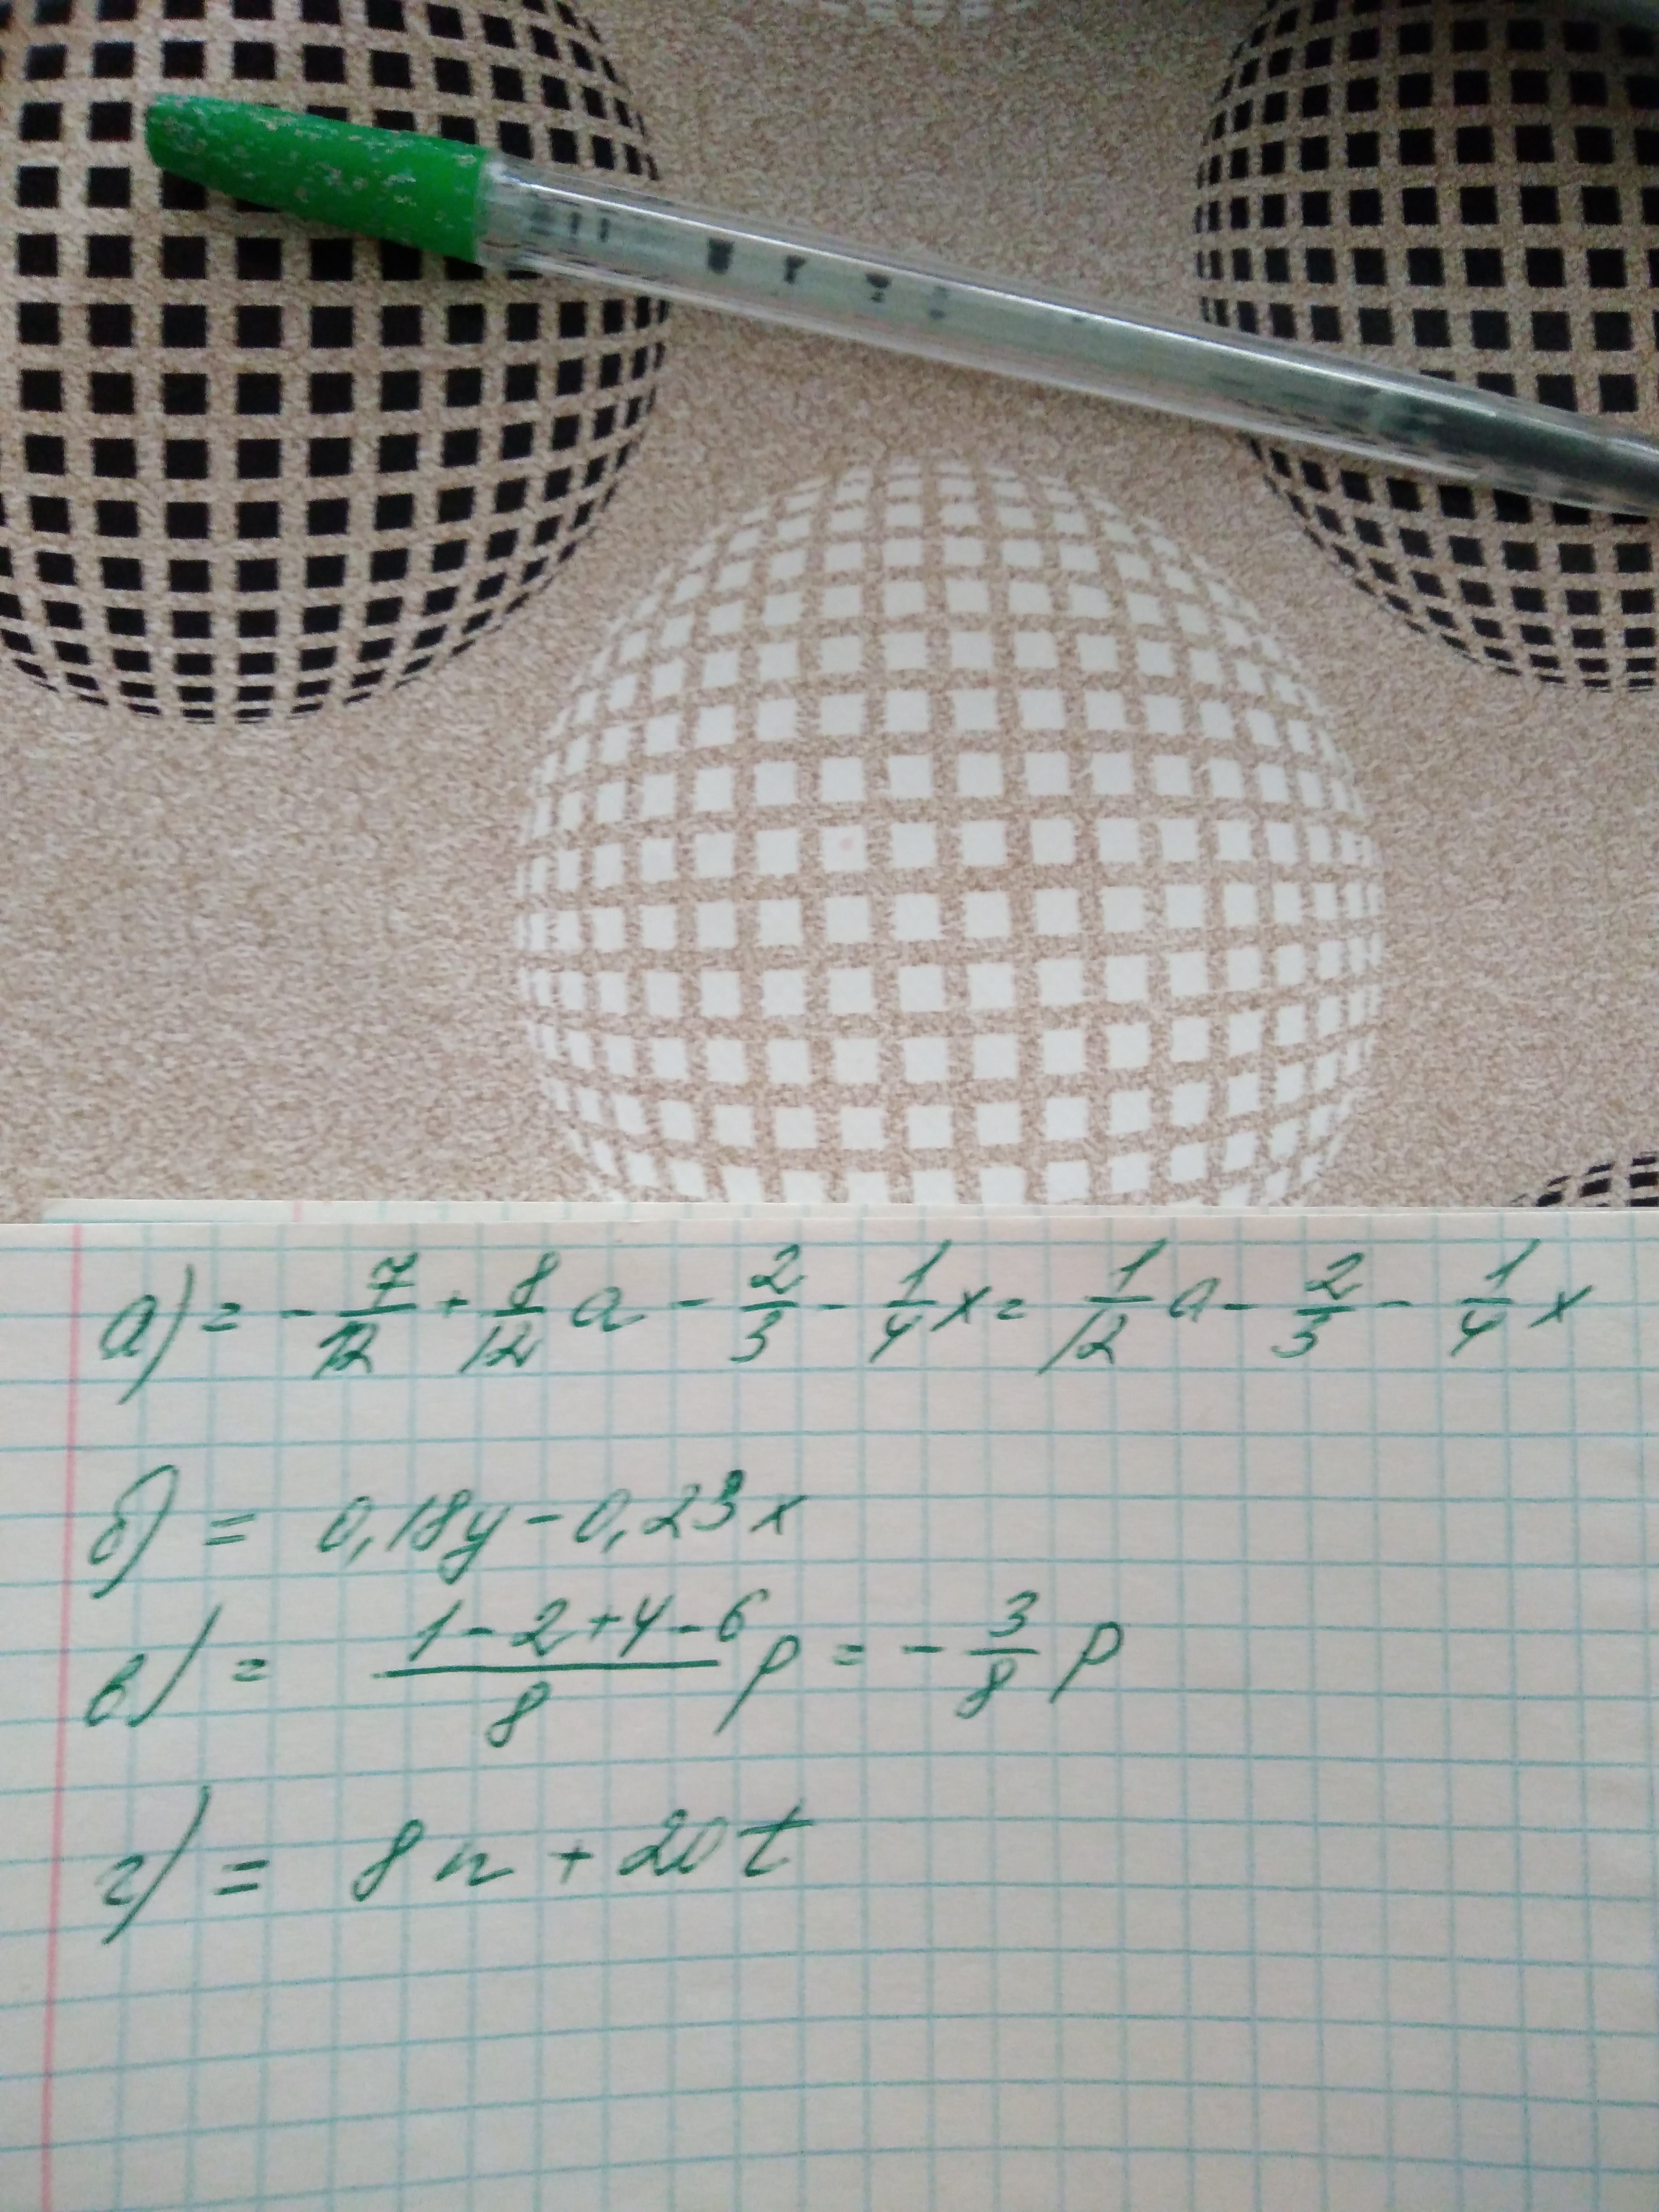 а) = - 7/12 + 8/12 a - 2/3 - 1/4 x = 1/12 a - 2/3 - 1/4 x
б) = 0,18y - 0,23x
в) = (1-2+4-6)/8 p = - 3/8 p
г) = 8n + 20t